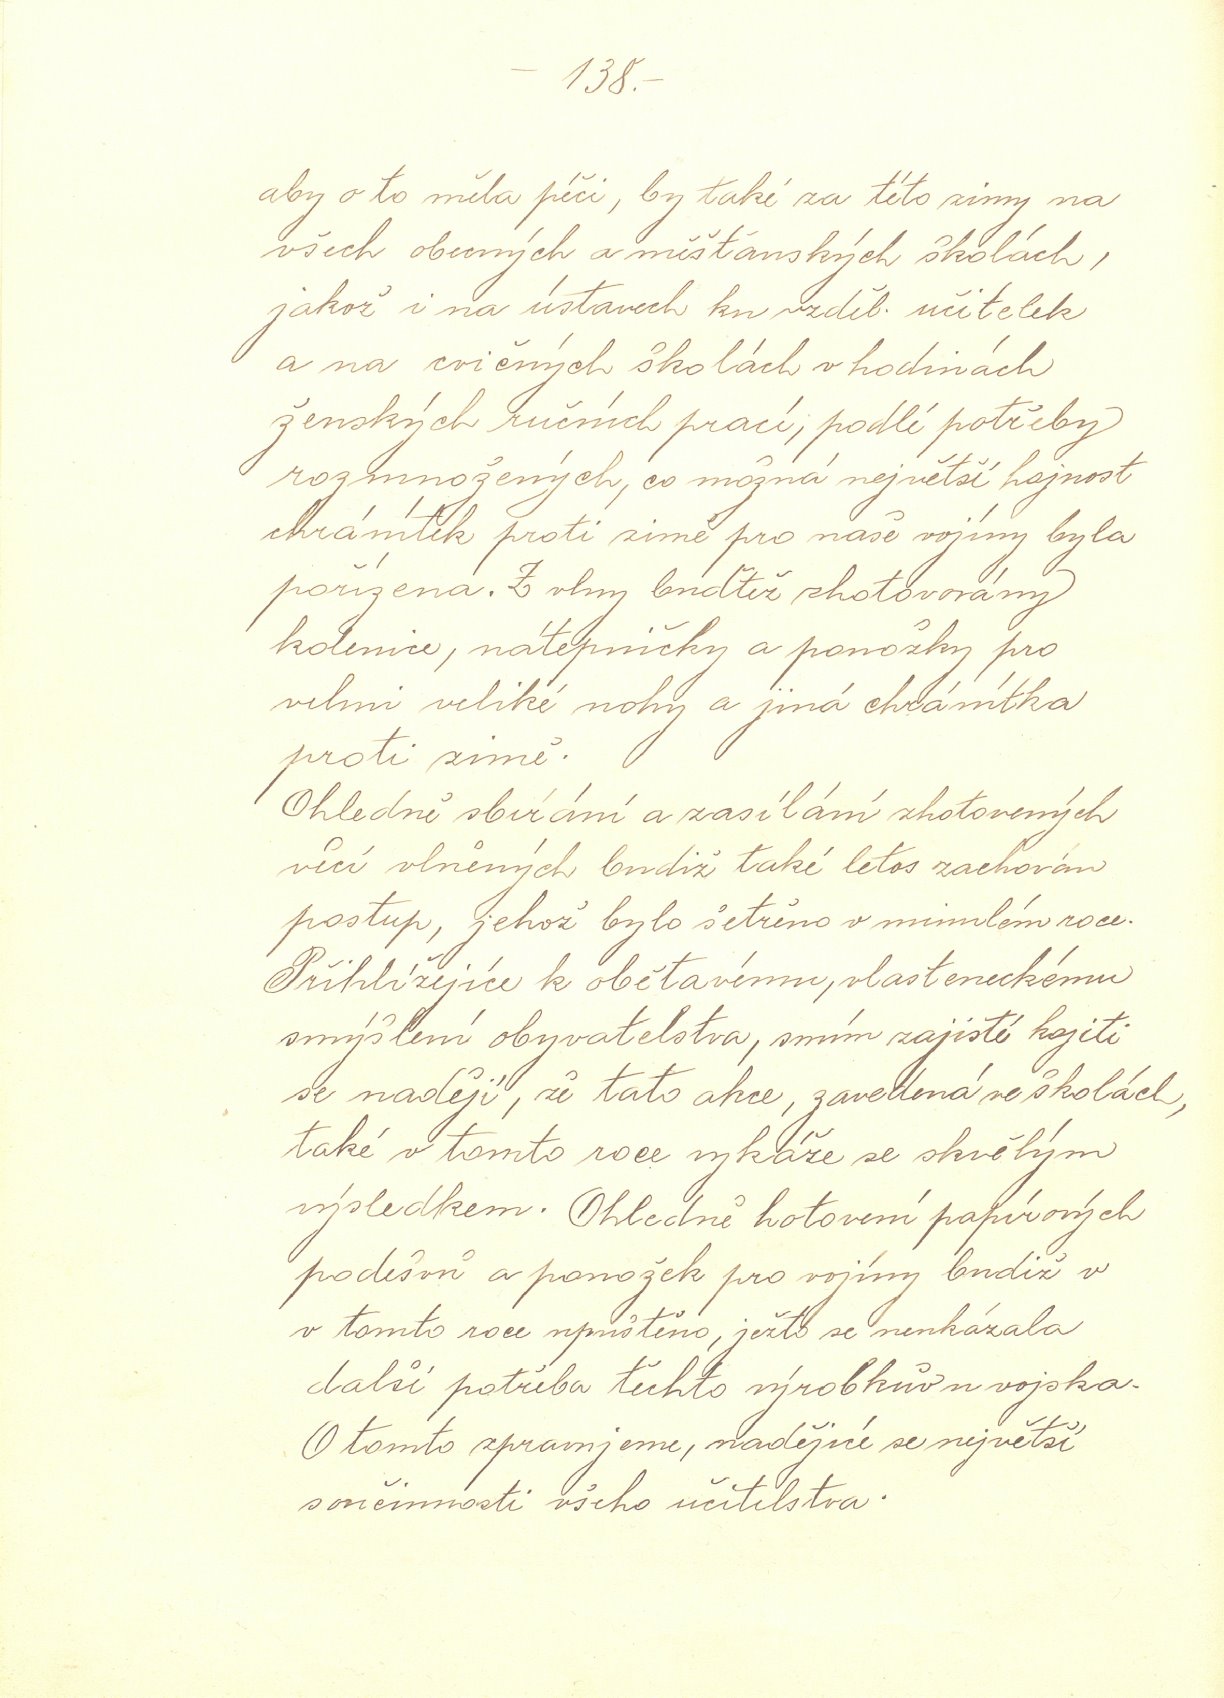 – 138. –
aby o to měla péči, by také za této zimy na
všech obecných a měšťanských školách,
jakož i na ústavech ku vzděl. učitelek
a na cvičných školách v hodinách
ženských ručních prací, podlé potřeby
rozmnožených, co možná největší hojnost
chránítek proti zimě pro naše vojíny byla
pořízena. Z vlny buďtěž zhotovovány
kolenice, nátepničky a ponožky pro
velmi veliké nohy a jiná chránítka
proti zimě.
Ohledně sbírání a zasílání zhotovených
věcí vlněných budiž také letos zachován
postup, jehož bylo šetřeno v minulém roce.
Přihlížejíce k obětavému, vlasteneckému
smýšlení obyvatelstva, smím zajisté kojiti
se nadějí, že tato akce, zavedená ve školách,
také v tomto roce vykáže se skvělým
výsledkem. Ohledně hotovení papírových
podešvů a ponožek pro vojíny budiž v
v tomto roce upuštěno, ježto se neukázala
další potřeba těchto výrobkův u vojska.
O tomto zpravujeme, nadějíce se největší
součinnosti všeho učitelstva.